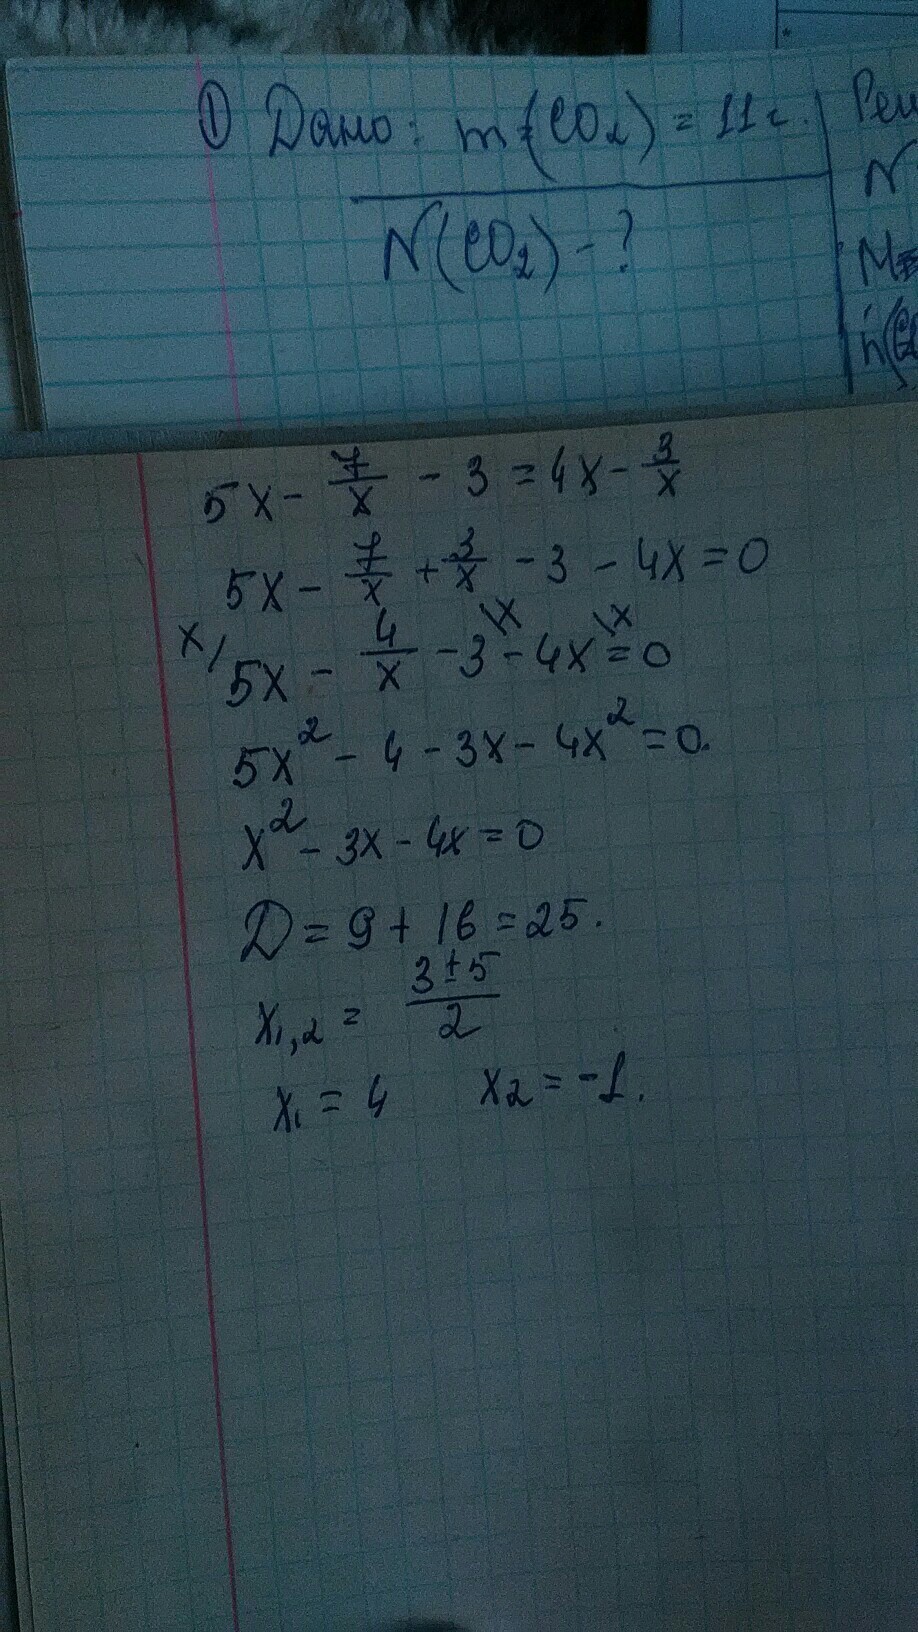 ① Дано: m(CO₂) = 11 г.
N(CO₂) - ?
N
M
n(
5x - 7/x - 3 = 4x - 3/x
5x - 7/x + 3/x - 3 - 4x = 0
x/ 5x - 4/x - 3\x - 4x\x = 0
5x² - 4 - 3x - 4x² = 0.
x² - 3x - 4x = 0
D = 9 + 16 = 25.
x₁,₂ = (3 ± 5)/2
x₁ = 4 x₂ = -1.